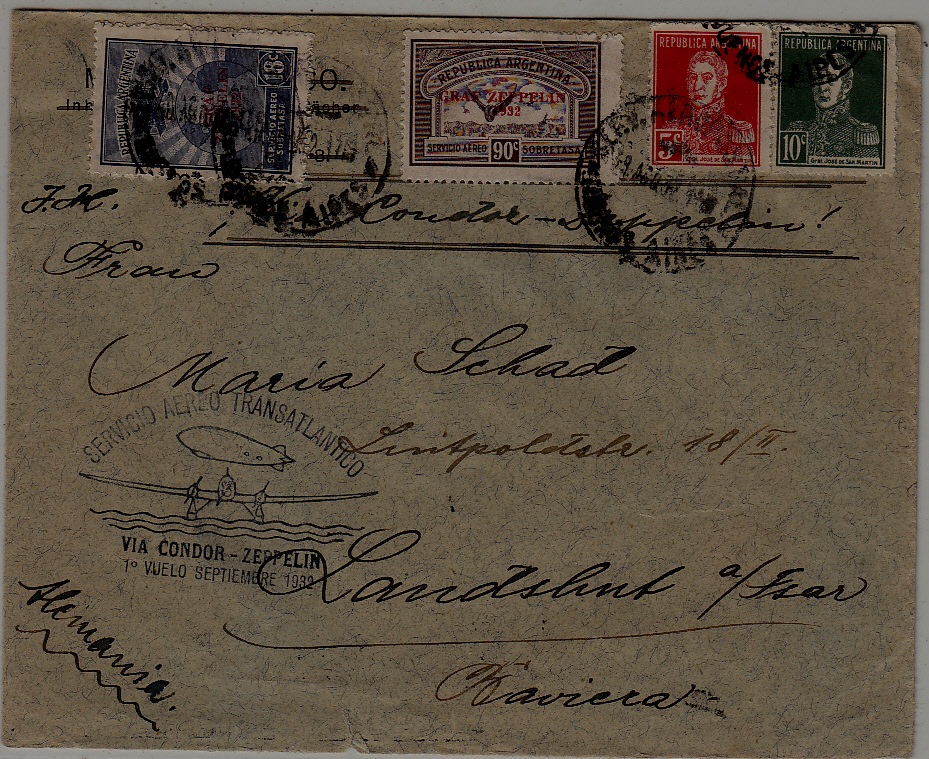 REPUBLICA ARGENTINA
18c
SERVICIO AEREO SOBRETASA
REPUBLICA ARGENTINA
GRAF ZEPPELIN
1932
SERVICIO AEREO 90c SOBRETASA
REPUBLICA ARGENTINA
5c
GRAL. JOSÉ DE SAN MARTIN
REPUBLICA ARGENTINA
10c
GRAL. JOSÉ DE SAN MARTIN
BS. AIRES
Condor - Zeppelin!
Frau
Maria Schad
Luitpoldstr. 18/II.
SERVICIO AEREO TRANSATLANTICO
VIA CONDOR - ZEPPELIN
1º VUELO SEPTIEMBRE 1932
Landshut a/Isar
Alemania.
Baviera